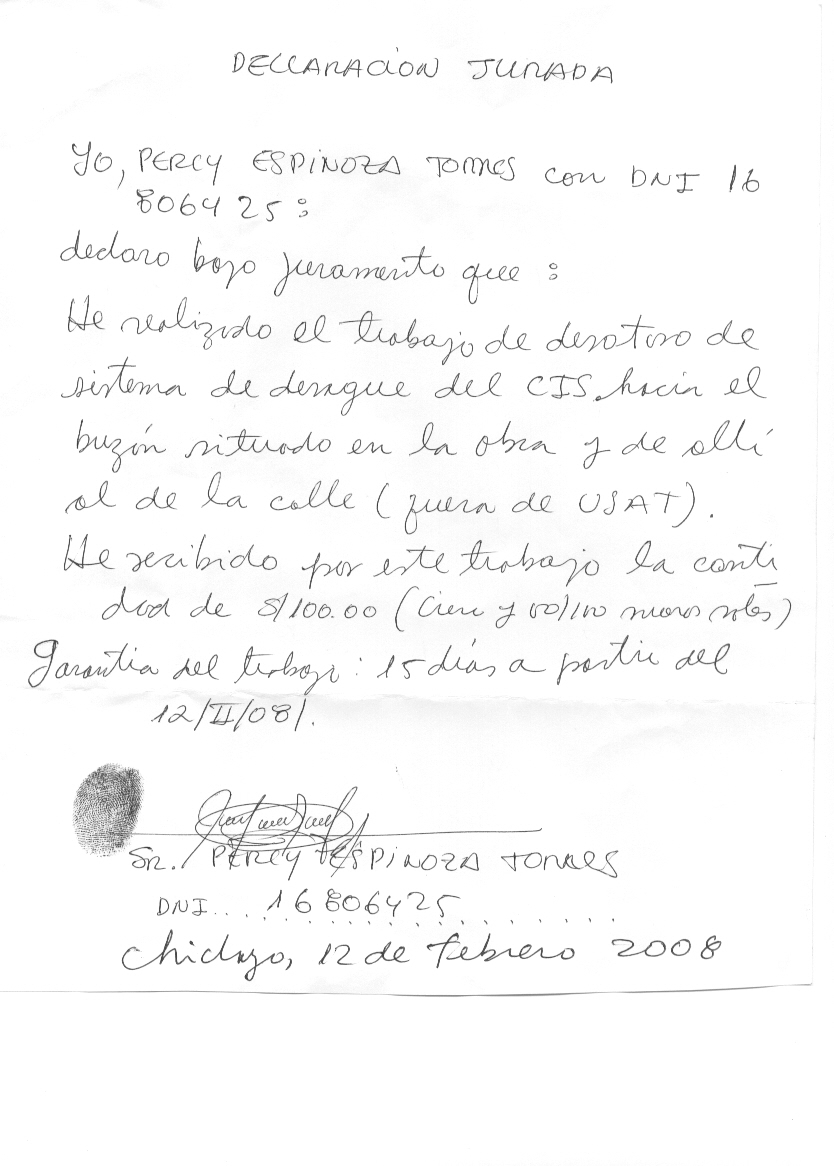 DECLARACION JURADA
Yo, PERCY ESPINOZA TORRES con DNI 16
806425:
declaro bajo juramento que:
He realizado el trabajo de desatoro de
sistema de desague del CIS hacia el
buzón situado en la obra y de allí
al de la calle (fuera de USAT).
He recibido por este trabajo la canti
dad de S/100.00 (Cien y 00/100 nuevos soles)
Garantia del trabajo: 15 días a partir del
12/II/08/.
Sr. PERCY ESPINOZA TORRES
DNI... 16806425
Chiclayo, 12 de febrero 2008